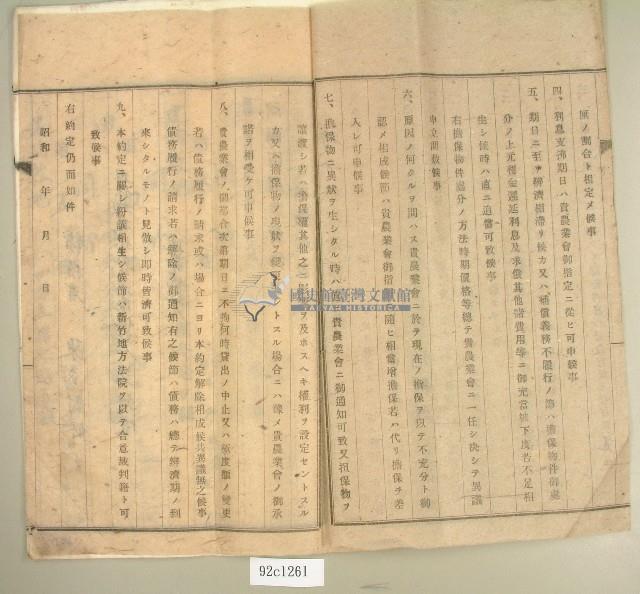 厘ノ割合ト相定メ候事
四、利息支拂期日ハ貴農業會御指定ニ從ヒ可申候事
五、期日ニ至リ辨濟相滯リ候カ又ハ補償義務不履行ノ節ハ擔保物件御處
分ノ上元利金遲延利息及求償其他諸費用等ニ御充當被下度若不足相
生シ候時ハ直ニ追償可致候事
右擔保物件處分ノ方法時期價格等總テ貴農業會ニ一任シ決シテ異議
申立間敷候事
六、原因ノ何タルヲ問ハス貴農業會ニ於テ現在ノ擔保ヲ以テ不充分ト御
認メ相成候節ハ貴農業會御指 隨ヒ相當增擔保若ハ代リ擔保ヲ差
入レ可申候事
七、擔保物ニ異狀ヲ生シタル時ハ 貴農業會ニ御通知可致又擔保物ヲ
讓渡シ若ハ擔保權其他之ニ影 ヲ及ホスヘキ權利ヲ設定セントスル
カ又ハ擔保物ノ現狀ヲ變 トスル場合ニハ豫メ貴農業會ノ御承
諾ヲ相受ケ可申候事
八、貴農業會ノ御都合次第期日ニ不拘何時貸出ノ中止又ハ極度額ノ變更
若ハ債務履行ノ請求或ハ場合ニヨリ本約定解除相成候共異議無之候事
債務履行ノ請求若ハ解除ノ御通知有之候節ハ債務ハ總テ辨濟期ノ到
來シタルモノト見做シ即時皆濟可致候事
九、本約定ニ關シ紛議相生シ候節ハ新竹地方法院ヲ以テ合意裁判籍ト可
致候事
右約定仍而如件
昭和 年 月 日
國史館臺灣文獻館
TAIWAN HISTORICA
92c1261